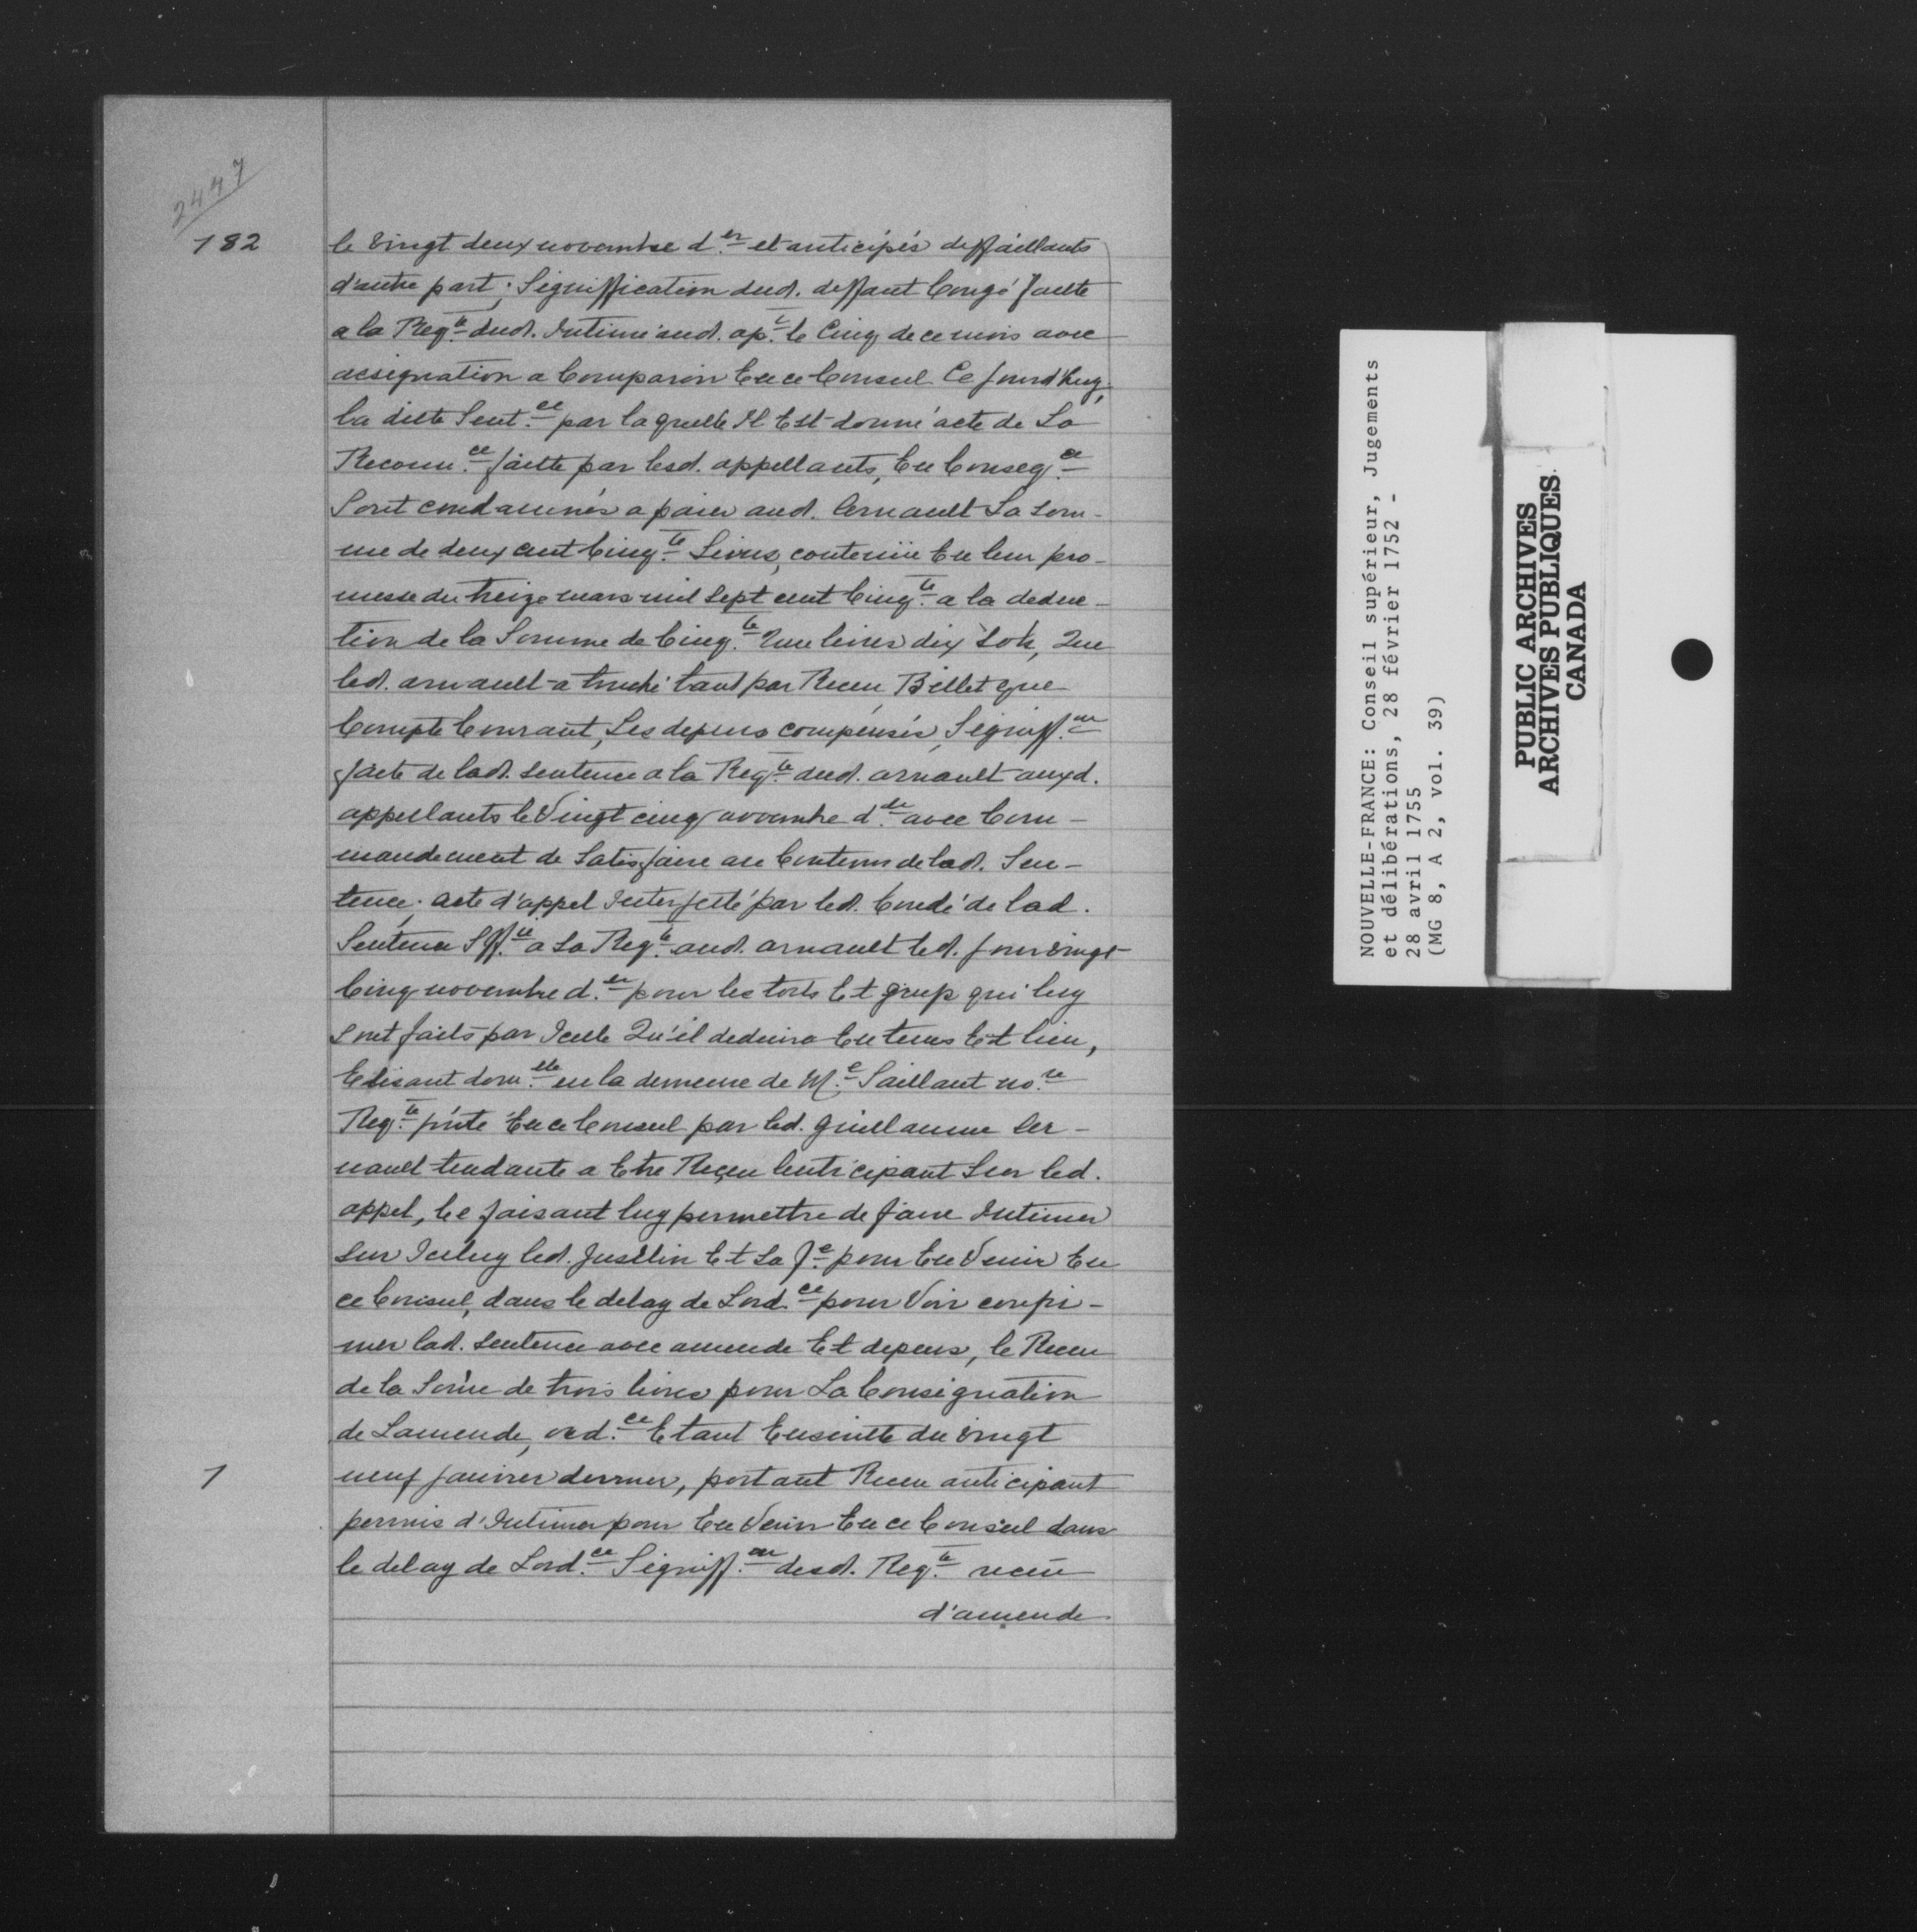 2447
182
le Vingt deux novembre d.er et anticipés deffaillants
d'autre part; Signiffication dud. deffaut Congé faitte
a la Req.te dud. Intimé aud. ap.t le Cinq de ce mois avec
assignation a Comparoir En ce Conseil Ce jourd'huy,
la ditte Sent.ce par laquelle Il Est donné acte de La
Reconn.ce faitte par lesd. appellants, En Conseq.ce
Sont condamnés a paier aud. Arnault La Som-
me de deux cent Cinq.te Livres, contenüe En leur pro-
messe du treize mars mil Sept cent Cinq.te a la deduc-
tion de la Somme de Cinq.te Une livres dix Sols, Que
led. arnault a touché tant par Receu, Billet que
Compte Courant, Les depens compensés, Signiff.on
faite de lad. Sentence a la Req.te dud. arnault auxd.
appellants le Vingt cinq novembre d.er avec Com-
mandement de Satisfaire au Contenu de lad. Sen-
tence. acte d'appel Interjetté par led. Condé de lad.
Sentence Sff.ié a La Req.te aud. arnault led. jour Vingt
Cinq novembre d.er pour les torts Et griefs qui luy
Sont faits par Icelle Qu'il deduira En tems Et lieu,
Elisant dom.lle en la demeure de M.e Saillant no.re
Req.te p'nté En ce Conseil par led. Guillaume Ar-
nault tendante a Etre Reçeu Anticipant Sur led.
appel, Ce faisant luy permettre de faire Intimer
Sur Iceluy led. Jusslin Et Sa f.e pour En Venir En
ce Conseil, dans le delay de Lord.ce pour Voir confir-
mer lad. Sentence avec amende Et depens, le Receu
de la Som̃e de trois livres pour La Consignation
de Lamende, ord.ce Etant Ensuitte du Vingt
1
neuf janvier dernier, portant Receu anticipant
permis d'Intimer pour En Venir En ce Conseil dans
le delay de Lord.ce Signiff.on desd. Req.te receu
d'amende
NOUVELLE-FRANCE: Conseil supérieur, Jugements
et délibérations, 28 février 1752 -
28 avril 1755
(MG 8, A 2, vol. 39)
PUBLIC ARCHIVES
ARCHIVES PUBLIQUES
CANADA